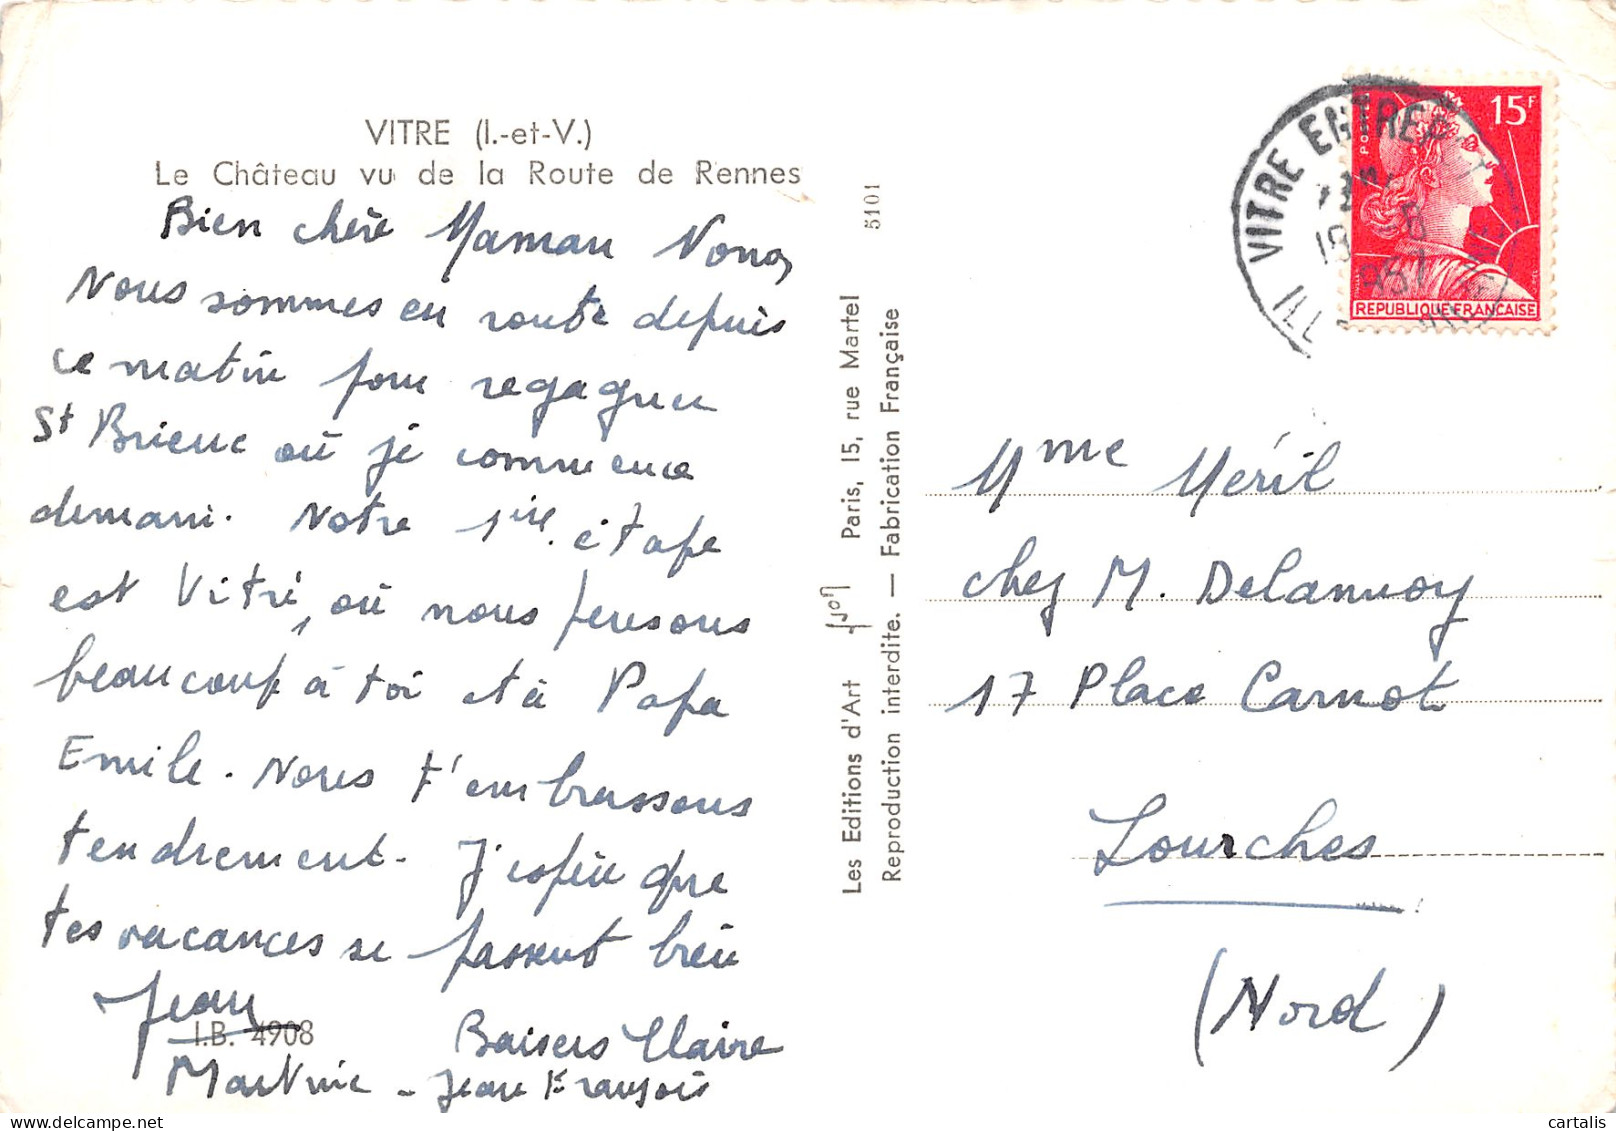 VITRE (I.-et-V.)
Le Château vu de la Route de Rennes
Bien chère Maman Nona,
Nous sommes en route depuis
ce matin pour regagner
St Brieuc où je commence
demain. Notre 1ère étape
est Vitré, où nous pensons
beaucoup à toi et à Papa
Emile. Nous t'embrassons
tendrement. J'espère que
tes vacances se passent bien
Jean
I.B. 4908
Baisers Claire
Martine - Jean François
5101
Les Editions d'Art Yvon Paris, 15, rue Martel
Reproduction interdite. — Fabrication Française
VITRE ENTREPOT
957
ILLE
VILAINE
POSTES
15F
REPUBLIQUE FRANCAISE
Mme Méril
chez M. Delannoy
17 Place Carnot
Lourches
(Nord)
cartalis